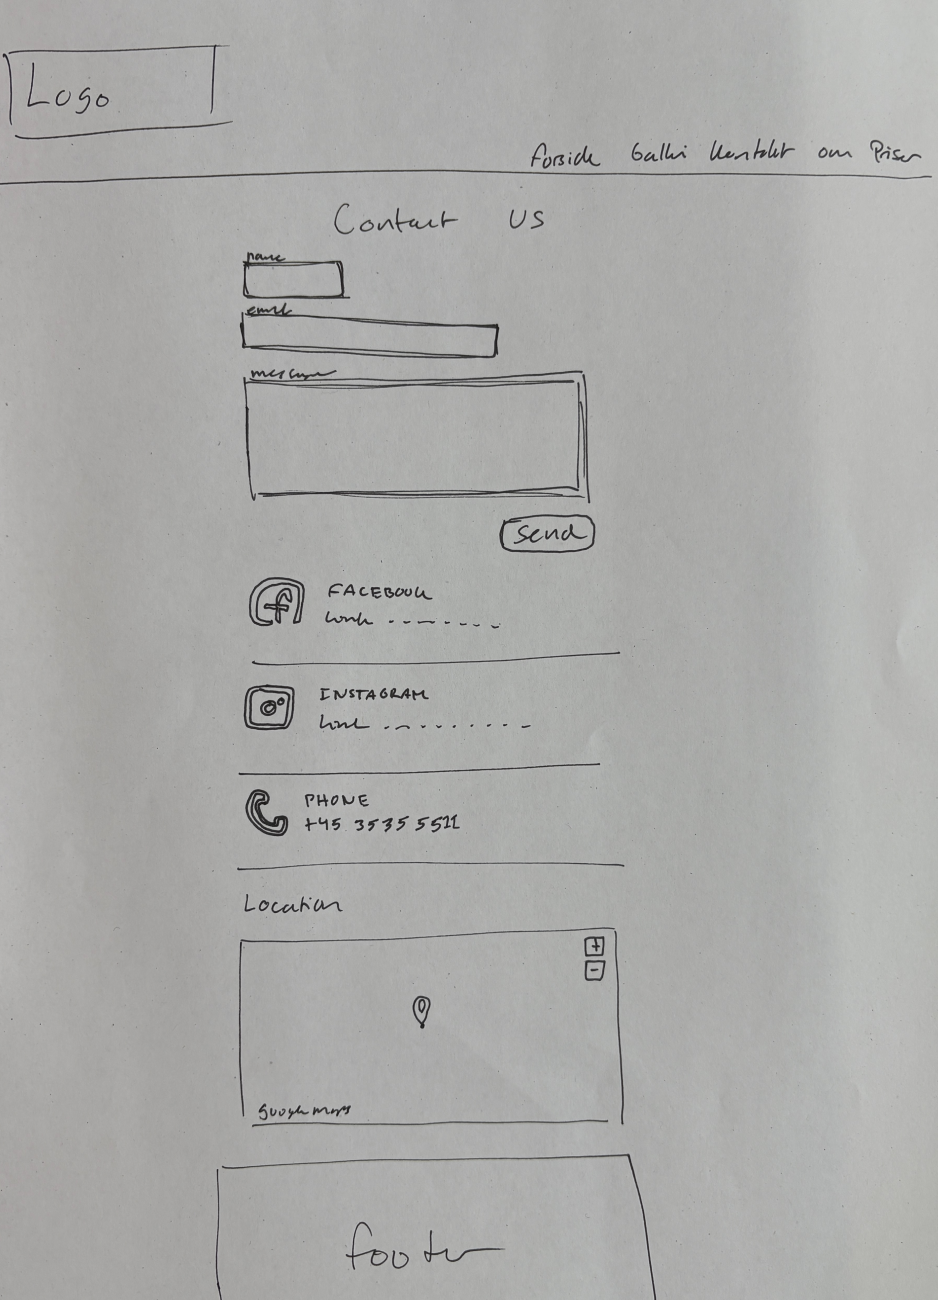 Logo
Forside Galleri Kontakt om Priser
Contact US
name
email
message
Send
FACEBOOK
link --------
INSTAGRAM
link ----------
PHONE
+45 3535 5511
Location
+
-
google maps
footer